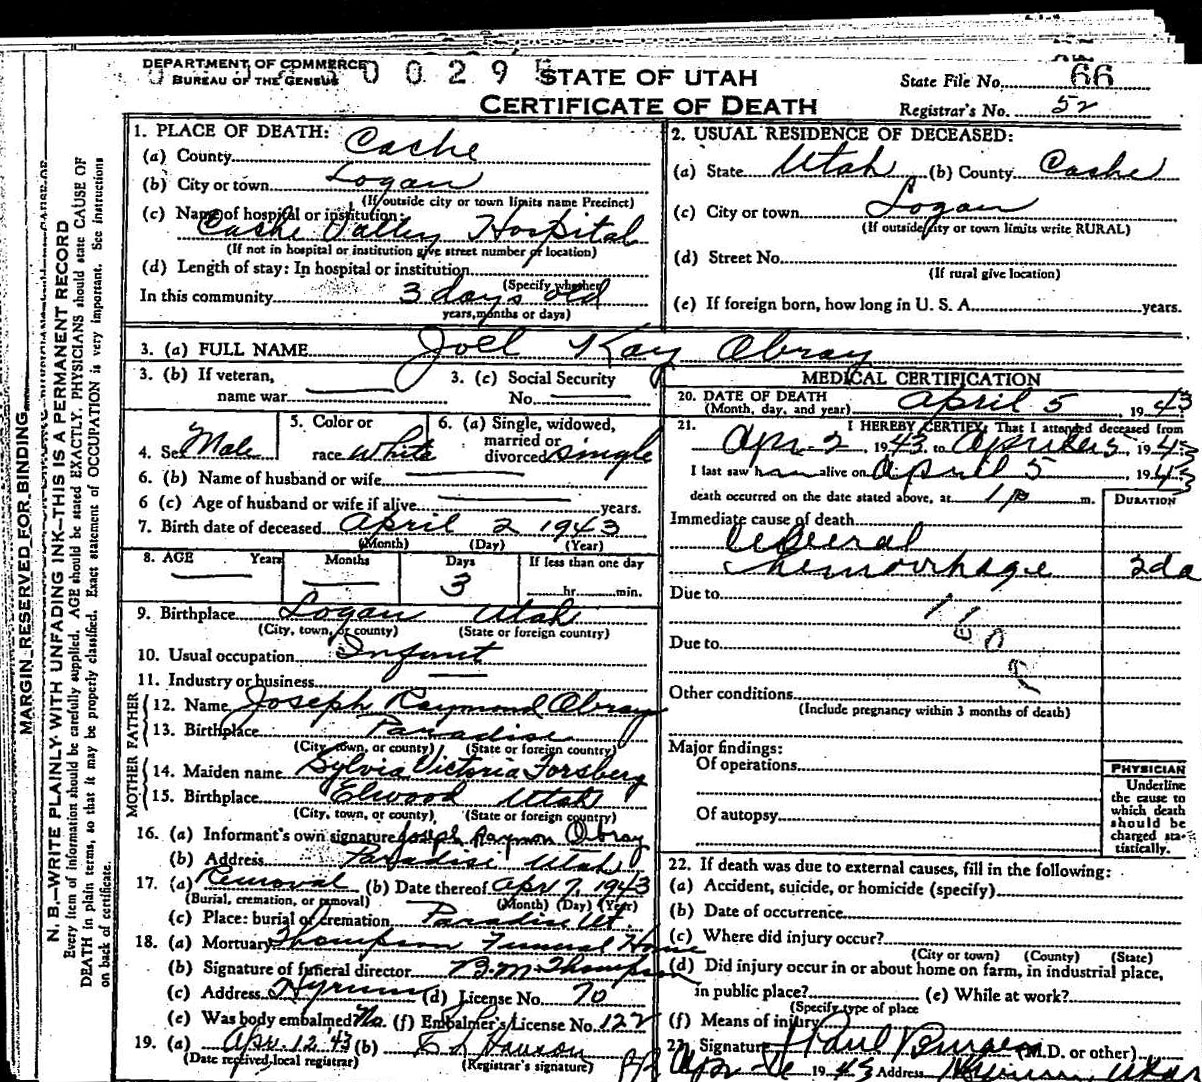 DEPARTMENT OF COMMERCE
BUREAU OF THE CENSUS
0 0 2 9
STATE OF UTAH
CERTIFICATE OF DEATH
State File No. 66
Registrar's No. 52
MARGIN RESERVED FOR BINDING
N. B.—WRITE PLAINLY WITH UNFADING INK—THIS IS A PERMANENT RECORD
Every item of information should be carefully supplied. AGE should be stated EXACTLY. PHYSICIANS should state CAUSE OF
DEATH in plain terms, so that it may be properly classified. Exact statement of OCCUPATION is very important. See instructions
on back of certificate.
1. PLACE OF DEATH:
(a) County Cache
(b) City or town Logan
(If outside city or town limits name Precinct)
(c) Name of hospital or institution:
Cache Valley Hospital
(If not in hospital or institution give street number or location)
(d) Length of stay: In hospital or institution
(Specify whether
In this community 3 days old
years, months or days)
2. USUAL RESIDENCE OF DECEASED:
(a) State Utah (b) County Cache
(c) City or town Logan
(If outside city or town limits write RURAL)
(d) Street No.
(If rural give location)
(e) If foreign born, how long in U. S. A. years.
3. (a) FULL NAME Joel Kay Obray
3. (b) If veteran,
name war
3. (c) Social Security
No.
4. Sex Male
5. Color or
race White
6. (a) Single, widowed,
married or
divorced single
6. (b) Name of husband or wife
6 (c) Age of husband or wife if alive years.
7. Birth date of deceased April 2 1943
(Month) (Day) (Year)
8. AGE Years Months Days If less than one day
3 hr. min.
9. Birthplace Logan Utah
(City, town, or county) (State or foreign country)
10. Usual occupation Infant
11. Industry or business
FATHER
12. Name Joseph Raymond Obray
13. Birthplace Paradise
(City, town, or county) (State or foreign country)
MOTHER
14. Maiden name Sylvia Victoria Forsberg
15. Birthplace Elwood Utah
(City, town, or county) (State or foreign country)
16. (a) Informant's own signature Joseph Raymon Obray
(b) Address Paradise Utah
17. (a) Removal (b) Date thereof Apr 7, 1943
(Burial, cremation, or removal) (Month) (Day) (Year)
(c) Place: burial or cremation Paradise Ut.
18. (a) Mortuary Thompson Funeral Home
(b) Signature of funeral director B. M. Thompson
(c) Address Hyrum (d) License No. 70
(e) Was body embalmed No. (f) Embalmer's License No. 122
19. (a) Apr. 12 '43 (b)
(Date received local registrar) (Registrar's signature)
MEDICAL CERTIFICATION
20. DATE OF DEATH
(Month, day, and year) April 5, 1943
21. I HEREBY CERTIFY, That I attended deceased from
Apr 2 1943 to April 5, 1943
I last saw h alive on April 5 1943
death occurred on the date stated above, at 1 p m.
DURATION
Immediate cause of death
hemorrhage 2 da
Due to
Due to
Other conditions
(Include pregnancy within 3 months of death)
Major findings:
Of operations
Of autopsy
PHYSICIAN
Underline
the cause to
which death
should be
charged sta-
tistically.
22. If death was due to external causes, fill in the following:
(a) Accident, suicide, or homicide (specify)
(b) Date of occurrence
(c) Where did injury occur?
(City or town) (County) (State)
(d) Did injury occur in or about home on farm, in industrial place,
in public place? (e) While at work?
(Specify type of place
(f) Means of injury
23. Signature Paul Burgess (M.D. or other)
1943 Address Hyrum, Utah